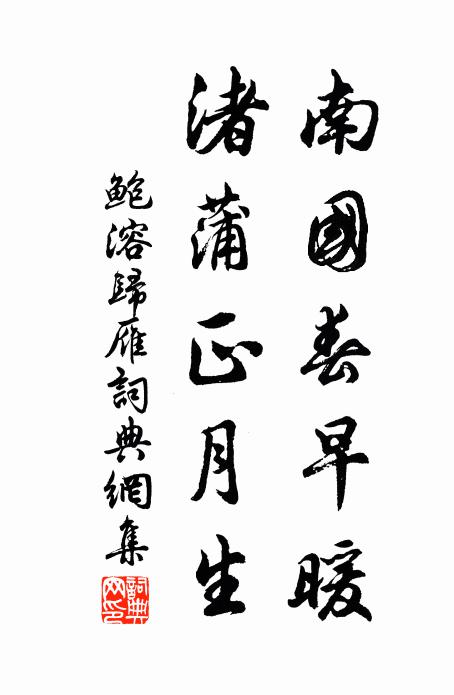 南國春早暖
渚蒲正月生
鮑溶歸雁詞典網集